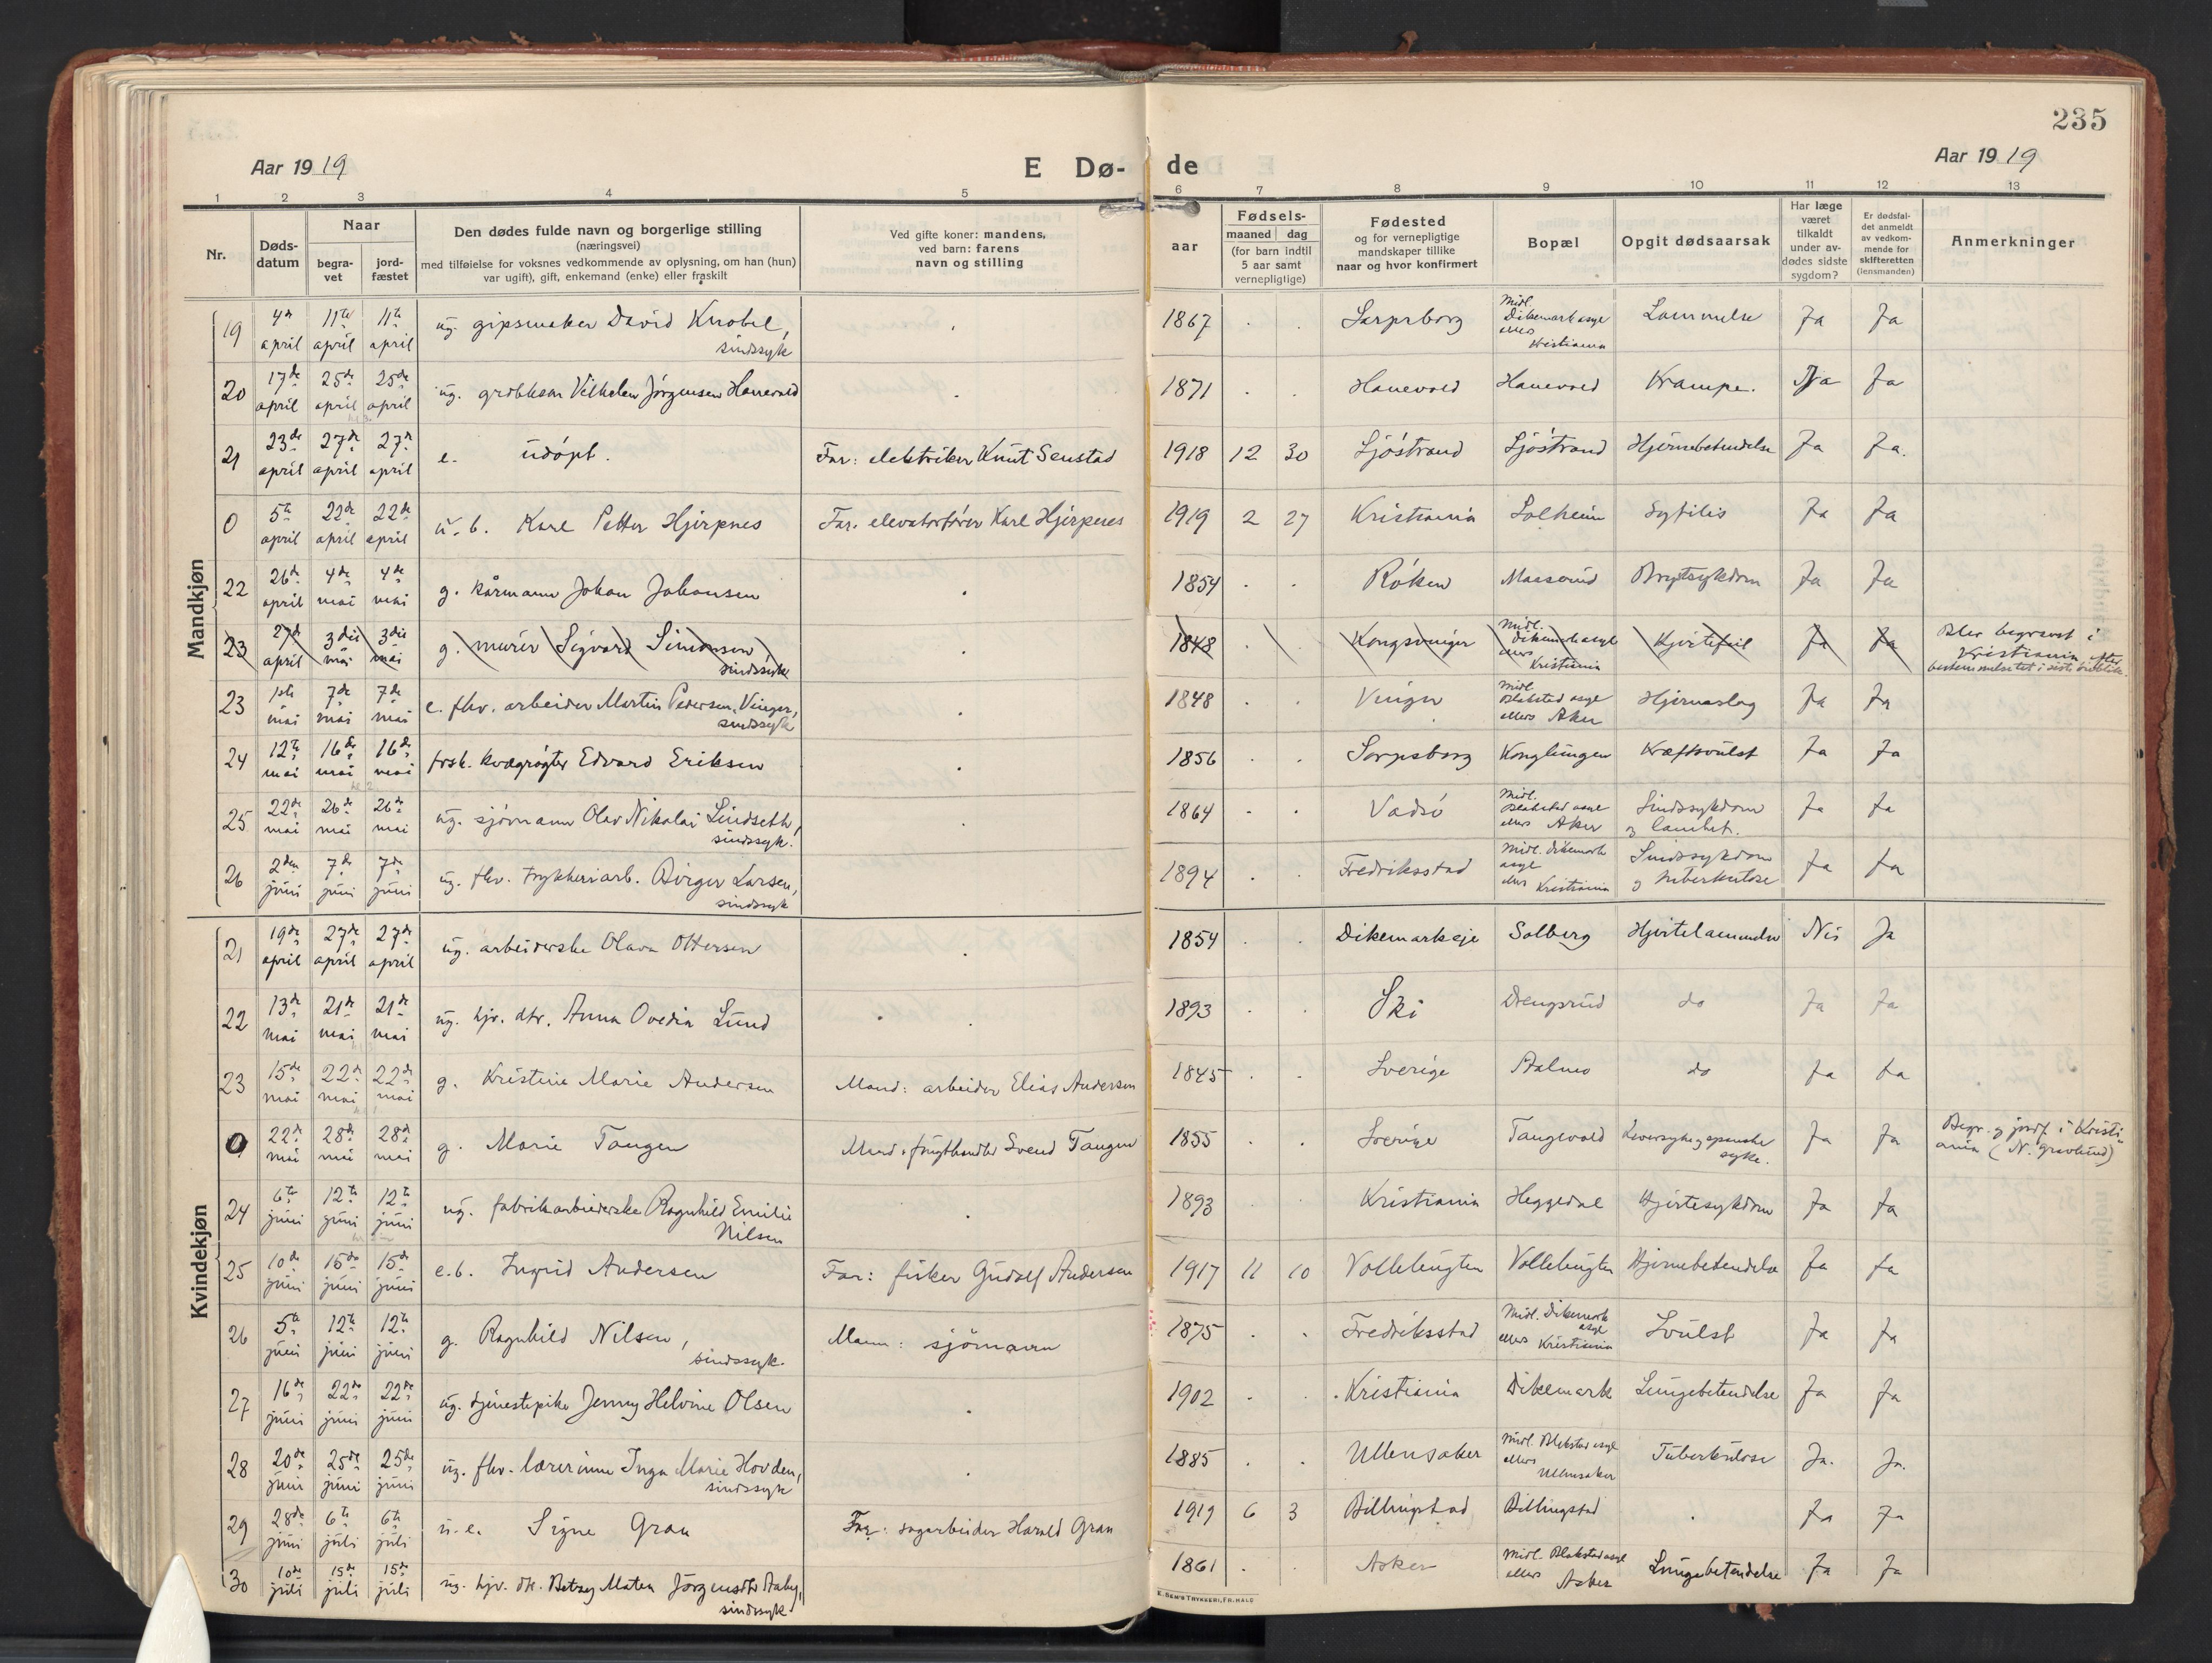 235
Aar 1919
E Dø-
de
Aar 1919
1 2 3 4 5 6 7 8 9 10 11 12 13
Nr.
Døds-
datum
Naar
begra-
vet
jord-
fæstet
Den dødes fulde navn og borgerlige stilling
(næringsvei)
med tilføielse for voksnes vedkommende av oplysning, om han (hun)
var ugift), gift, enkemand (enke) eller fraskilt
Ved gifte koner: mandens,
ved barn: farens
navn og stilling
aar
Fødsels-
maaned dag
(for barn indtil
5 aar samt
vernepligtige)
Fødested
og for vernepligtige
mandskaper tillike
naar og hvor konfirmert
Bopæl
Opgit dødsaarsak
Har læge
været
tilkaldt
under av-
dødes sidste
sygdom?
Er dødsfal-
det anmeldt
av vedkom-
mende for
skifteretten
(lensmanden)
Anmerkninger
Mandkjøn
19 4de april 11te april 11te april ug. gipsmaker David Knobel, sindssyk 1867 Sarpsborg Midl. Dikemark asyl ellers Kristiania Lammelse Ja Ja
20 17de april 25de april 25de april ug. Vilhelm Jörgensen Hanevold 1871 Hanevold Hanevold Krampe. Ja Ja
21 23de april 27de april 27de april e. udöpt. Far: elektriker Knut Senstad 1918 12 30 Sjöstrand Sjöstrand Hjernebetendelse Ja Ja.
0 5te april 22de april 22de april u. b. Karl Petter Hjerpnes Far. elevatorfører Karl Hjerpenes 1919 2 27 Kristiania Solheim Syfilis Ja Ja
22 26de april 4de mai 4de mai g. kårmann Johan Johansen 1854 Röken Masserud Brystsykdom Ja Ja
23 27de april 3die mai 3die mai g. murer Sigvard Simonsen sindssyk 1848 Kongsvinger Midl. Dikemark asyl ellers Kristiania Hjertefeil Ja Ja Blev begravet i
Kristiania efter
bestemmelse tat i siste öieblik.
23 1ste mai 7de mai 7de mai e. fhv. arbeider Martin Pedersen Vinger, sindssyk 1848 Vinger Midl. Blakstad asyl ellers Aker Hjerneslag Ja Ja
24 12te mai 16de mai 16de mai frsk. kvægrögter Edvard Eriksen 1856 Sarpsborg Konglungen Kræftsvulst Ja Ja
25 22de mai 26de mai 26de mai ug. sjömann Olav Nikolai Lindseth, sindssyk. 1864 Vadsö Midl. Blakstad asyl ellers Aker Sindssykdom og lamhet. Ja Ja
26 2den juni 7de juni 7de juni ug. fhv. trykkeriarb. Birger Larsen, sindssyk 1894 Fredriksstad Midl. Dikemark asyl ellers Kristiania Sindssykdom og tuberkulose Ja Ja
Kvindekjøn
21 19de april 27de april 27de april ug. arbeiderske Olava Ottersen 1854 Dikemarkeje Solberg Hjertelammelse Nei Ja
22 13de mai 21de mai 21de mai ug. hjv. dtr. Anna Ovedia Lund 1893 Ski Drengsrud do Ja Ja
23 15de mai 22de mai 22de mai g. Kristine Marie Andersen Mand: arbeider Elias Andersen 1845 Sverige do Ja Ja
0 22de mai 28de mai 28de mai g. Marie Tangen Mand: frugthandler Svend Tangen 1855 Sverige Tangevold Leversyke og spanske syke. Ja Ja Begr. og jordf. i Kristi-
ania (N. gravlund)
24 6te juni 12te juni 12te juni ug. fabrikarbeiderske Ragnhild Emilie Nilsen 1893 Kristiania Heggedal Hjertesykdom Ja Ja
25 10de juni 15de juni 15de juni e.b. Ingrid Andersen Far: fisker Gudolf Andersen 1917 11 10 Vollelengten Vollelengten Hjernebetendelse Ja Ja
26 5te juni 12te juni 12te juni g. Ragnhild Nilsen, sindssyk. Mann: sjömann 1875 Fredriksstad Midl. Dikemark asyl ellers Kristiania Svulst Ja Ja
27 16de juni 22de juni 22de juni ug. tjenestepike Jenny Helvine Olsen 1902 Kristiania Dikemark Lungebetendelse Ja Ja
28 20de juni 25de juni 25de juni ug. fhv. lærerinne Inga Marie Hovden, sindssyk 1885 Ullensaker Midl. Blakstad asyl ellers Ullensaker Tuberkulose Ja. Ja.
29 28de juni 6te juli 6te juli u.e. Signe Gran Far: sagarbeider Harald Gran 1919 6 3 Billingstad Billingstad Ja Ja
30 10de juli 15de juli 15de juli ug. hjv. dtr. Betsey Maten Jörgensdtr Aaby, sindssyk 1861 Asker Midl. Blakstad asyl ellers Asker Lungebetendelse Ja Ja
E. SEM'S TRYKKERI, FR.HALD